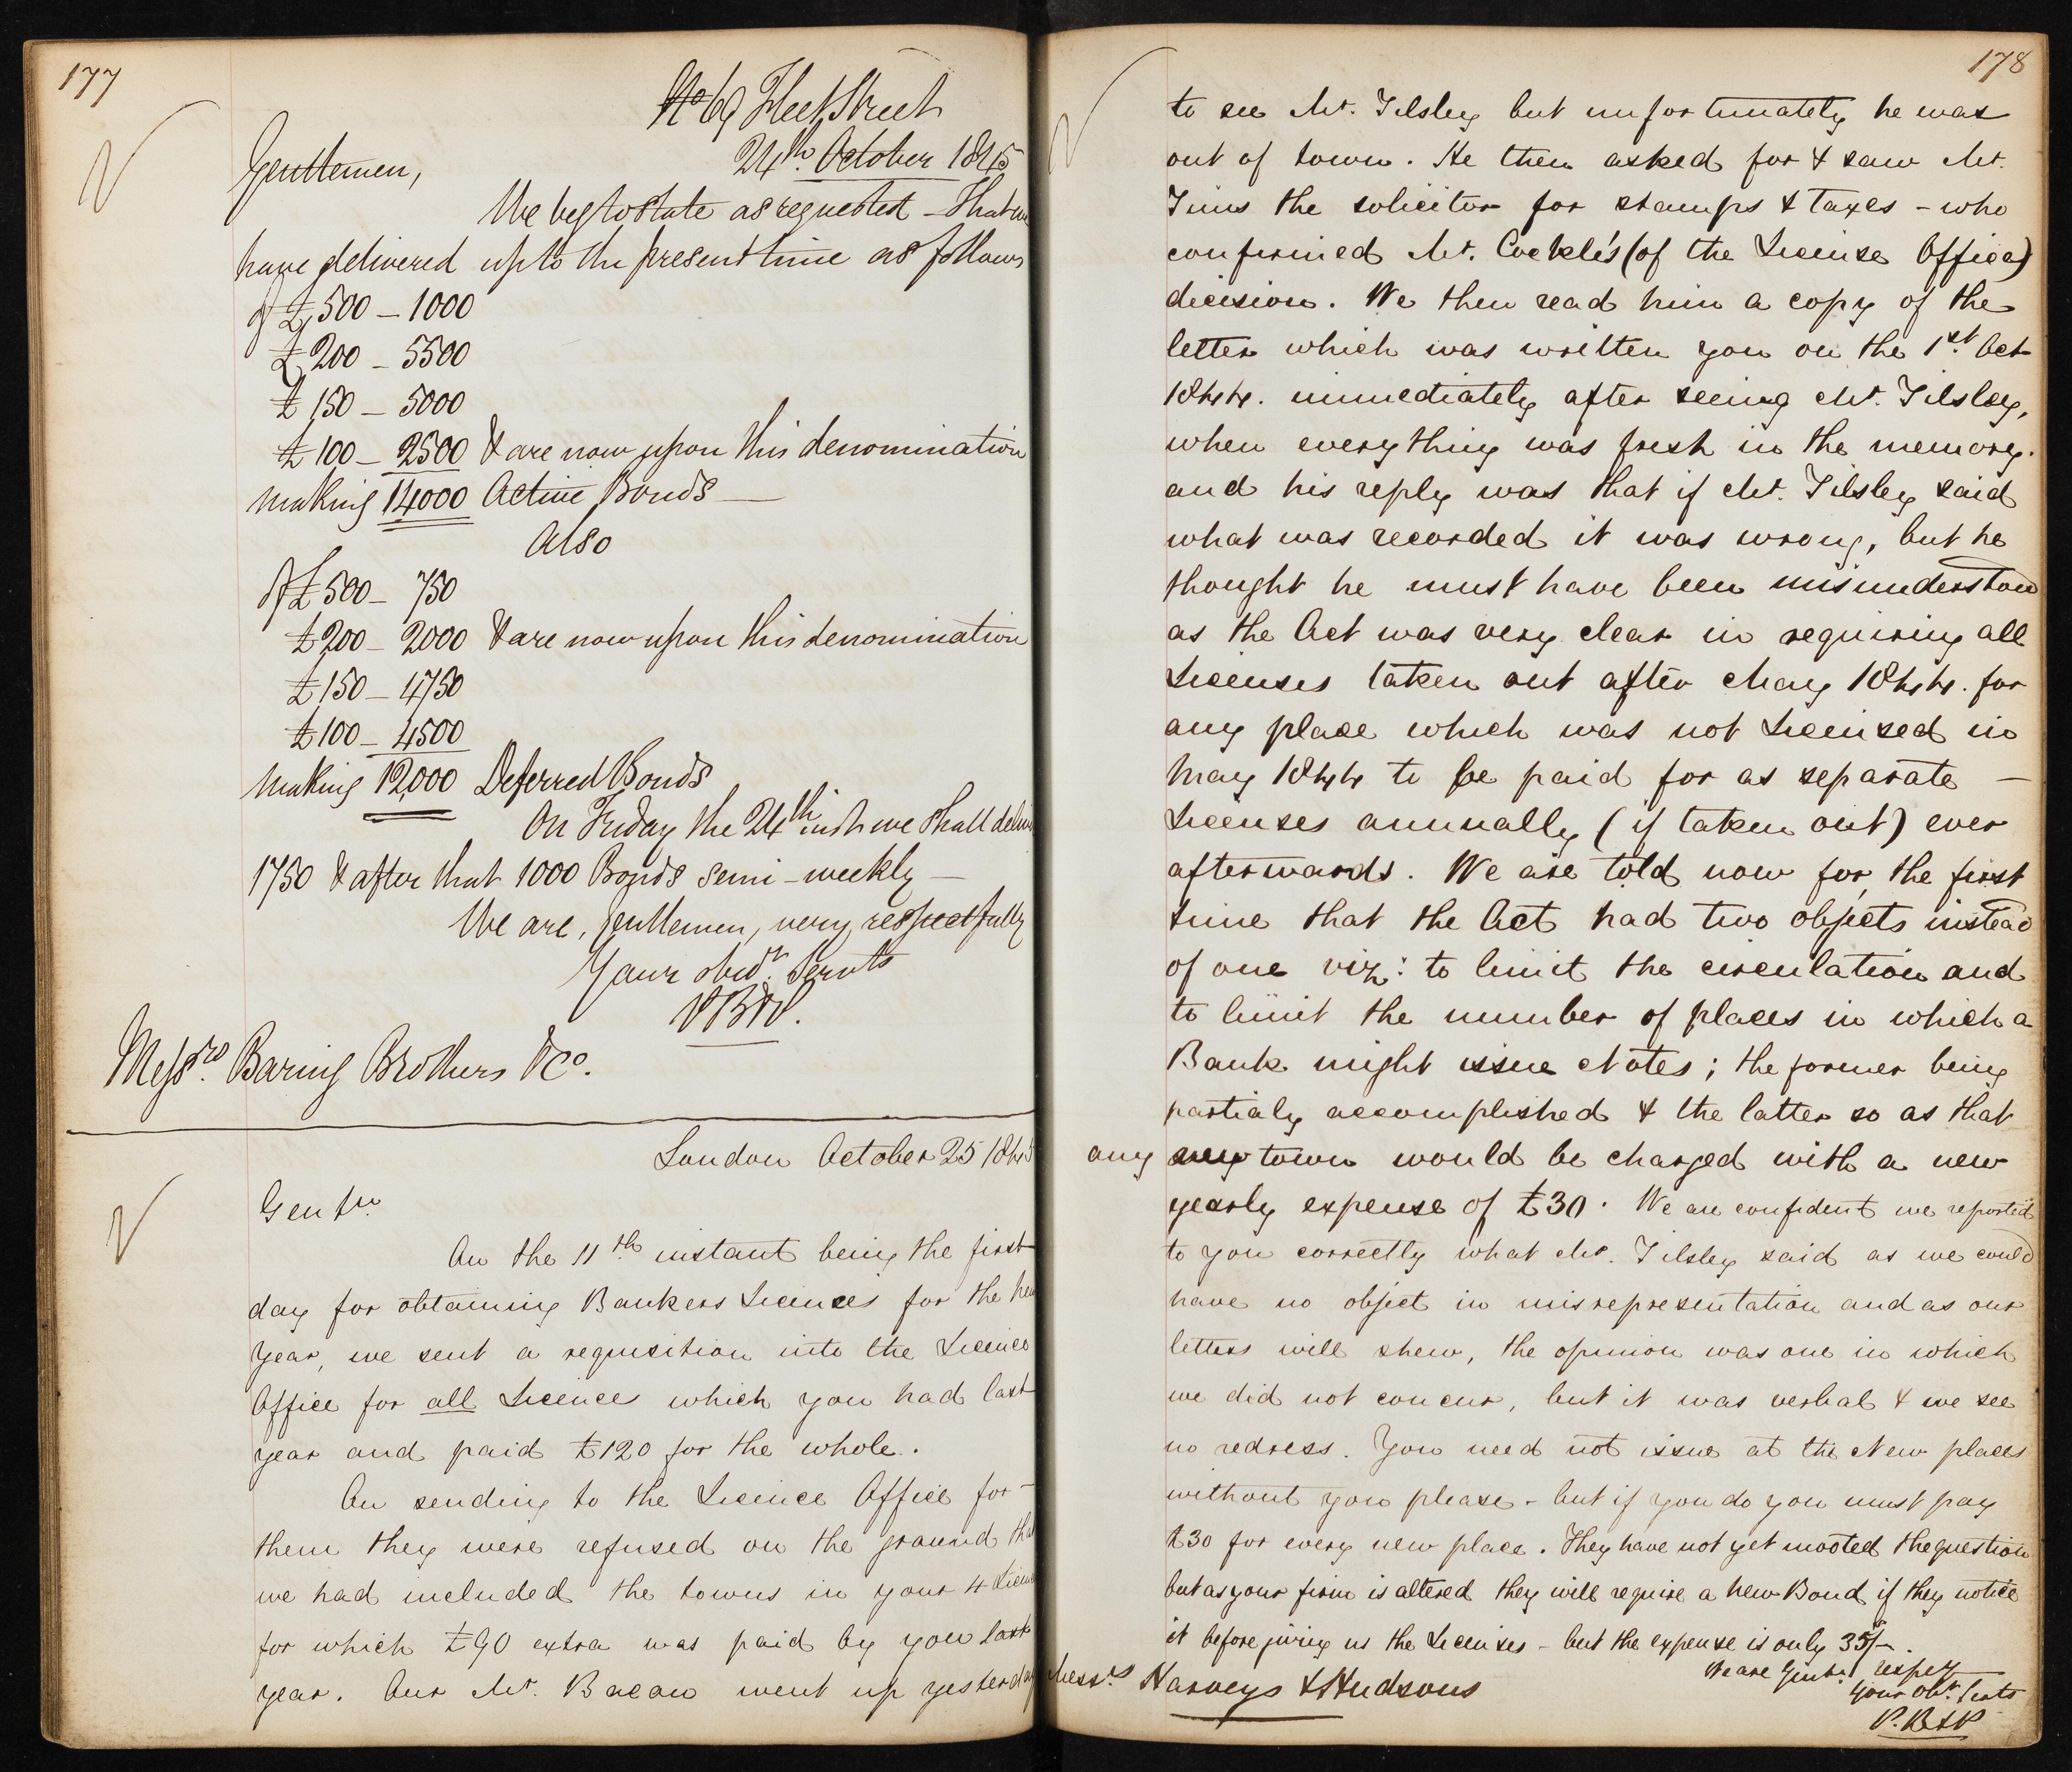 177
No 69 Fleet Street
24th October 1845
Gentlemen,
We beg to state as requested – That we
have delivered up to the present time as follows
of £500 – 1000
£200 – 5500
£150 – 5000
£100 – 2500 & are now upon this denomination
making 14000 Active Bonds —
Also
Of £500 – 750
£200 – 2000 & are now upon this denomination
£150 – 4750
£100 – 4500
making 12,000 Deferred Bonds
On Friday the 24th inst we shall deliver
1750 & after that 1000 Bonds semi-weekly —
We are, Gentlemen, very respectfully
Your obedt. Servts
PB&P.
Messrs. Baring Brothers & Co.
London October 25 1845
Gentn
On the 11th instant being the first
day for obtaining Bankers Licences for the new
Year, we sent a requisition into the Licence
Office for all Licences which you had last
year and paid £120 for the whole.
On sending to the Licence Office for –
them they were refused on the ground that
we had included the towns in your 4 Licences
for which £90 extra was paid by you last
year. Our Mr. Bacon went up yesterday
178
to see Mr. Tilsley but unfortunately he was
out of town. He then asked for & saw Mr.
Tims the solicitor for stamps & taxes – who
confirmed Mr. Cockle's (of the License Office)
decision. We then read him a copy of the
letter which was written you on the 1st. Oct
1844. immediately after seeing Mr. Tilsley,
when everything was fresh in the memory.
and his reply was that if Mr. Tilsley said
what was recorded it was wrong, but he
thought he must have been misunderstood
as the Act was very clear in requiring all
Licenses taken out after May 1844. for
any place which was not Licensed in
May 1844 to be paid for as separate —
Licenses annually (if taken out) ever
afterwards. We are told now for the first
time that the Act had two objects instead
of one viz: to limit the circulation and
to limit the number of places in which a
Bank might issue Notes; the former being
partialy accomplished & the latter so as that
any town would be charged with a new
yearly expense of £30. We are confident we reported
to you correctly what Mr. Tilsley said as we could
have no object in misrepresentation and as our
letters will shew, the opinion was one in which
we did not concur, but it was verbal & we see
no redress. You need not issue at the New places
without you please – but if you do you must pay
£30 for every new place. They have not yet mooted the question
but as your firm is altered they will require a new Bond if they notice
it before giving us the Licenses – but the expense is only 35/–.
We are Gentn. respy
Your Obt. Servts
P.B&P
Messrs Harveys & Hudsons